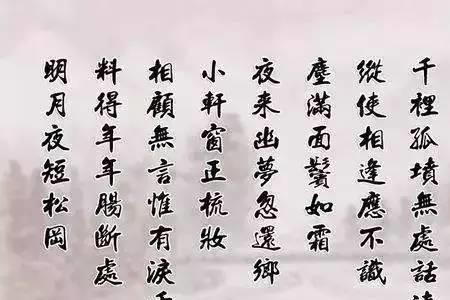 千裡孤墳無處話
縱使相逢應不識
塵滿面鬢如霜
夜来幽夢忽還鄉
小軒窗正梳妝
相顧無言惟有淚
料得年年腸斷處
明月夜短松岡